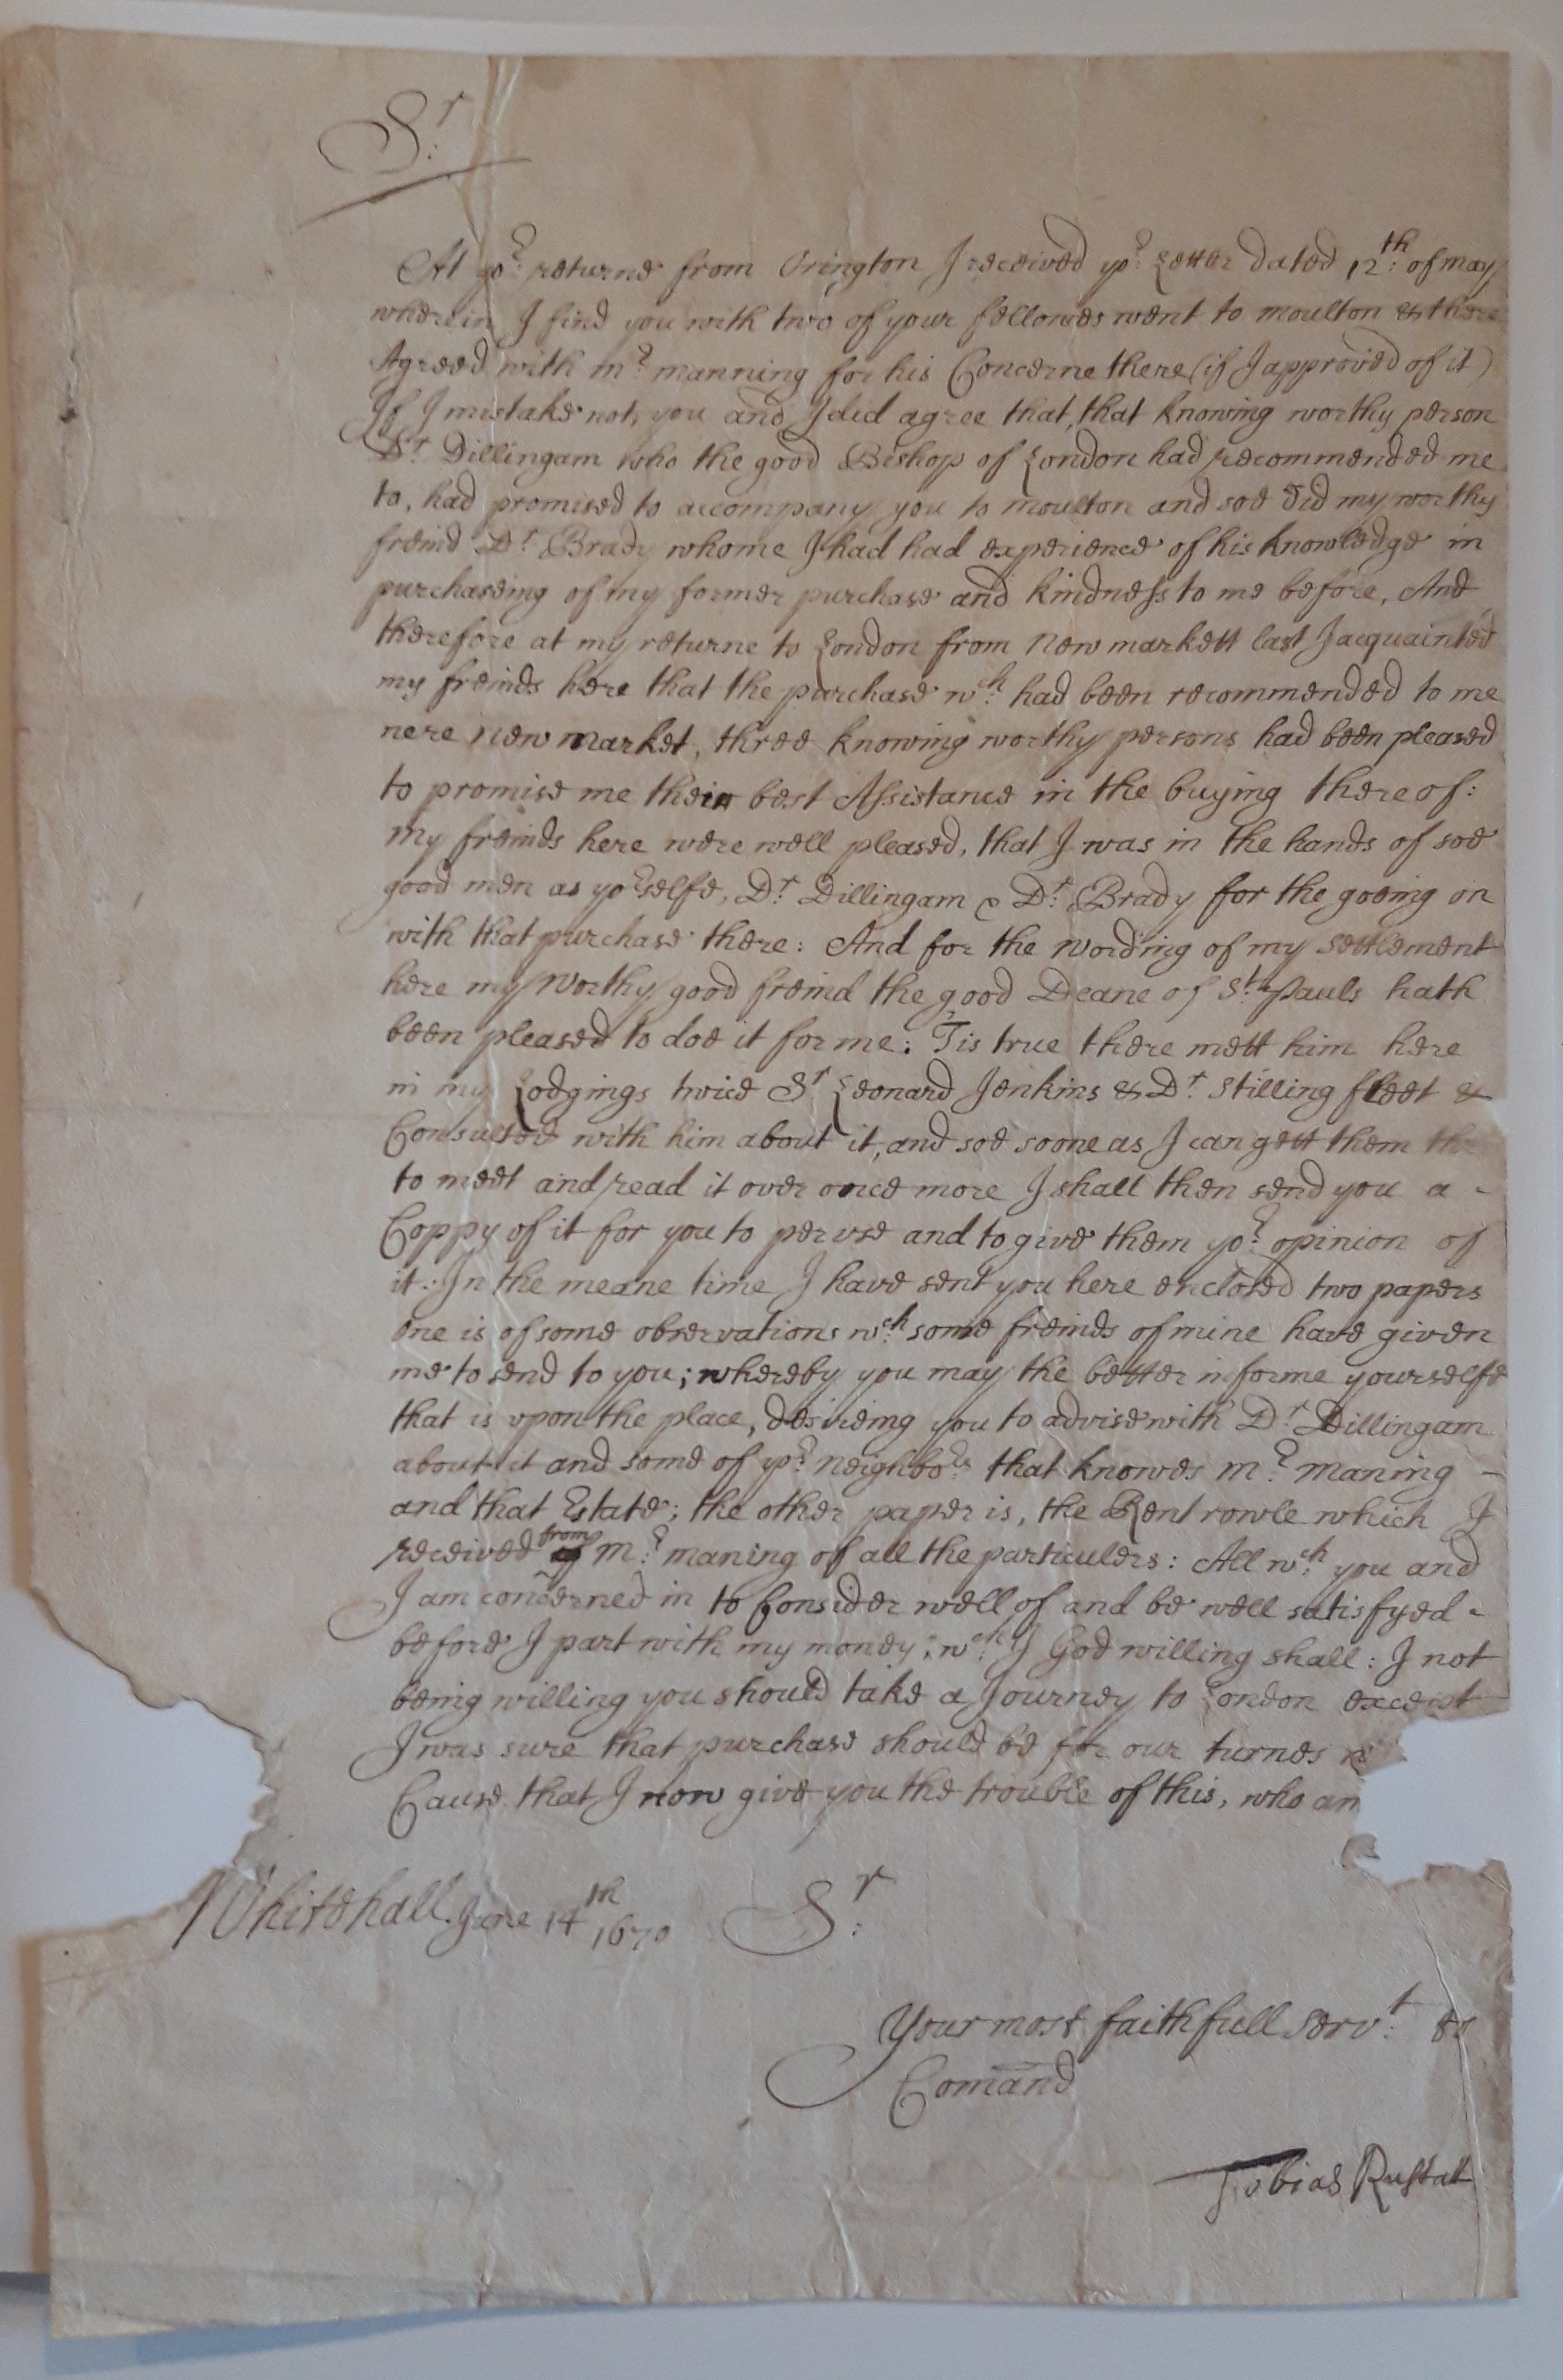 Sr:
At yor: returne from Orington I received yor: Letter dated 12th: of may
wherein I find you with two of your fellowes went to moulton & there
Agreed with mr: manning for his Concerne there (if I approved of it)
If I mistake not, you and I did agree that, that knowing worthy person
Dr: Dillingam who the good Bishop of London had recommended me
to, had promised to accompany you to moulton and soe did my worthy
freind Dr: Brady whome I had had experience of his knowledge in
purchaseing of my former purchase and kindness to me before, And
therefore at my returne to London from Newmarkett last I acquainted
my freinds here that the purchase wch: had been recommended to me
nere new market, three knowing worthy persons had been pleased
to promise me their best Assistance in the buying thereof:
my freinds here were well pleased, that I was in the hands of soe
good men as yorselfe, Dr: Dillingam & Dr: Brady for the goeing on
with that purchase there: And for the wording of my settlement
here my worthy good freind the good Deane of St: Pauls hath
been pleased to doe it for me: Tis true there mett him here
in my Lodgings twice Sr Leonard Jenkins & Dr: Stilling fleet &
Consulted with him about it, and soe soone as I can gett them
to meet and read it over once more I shall then send you a -
Coppy of it for you to peruse and to give them yor: opinion of
it: In the meane time I have sent you here enclosed two papers
one is of some observations wch: some freinds of mine have given
me to send to you; whereby you may the better informe yourselfe
that is upon the place, desireing you to advise with Dr: Dillingam
about it and some of yor: Neighbors: that knowes mr: maning -
and that Estate; the other paper is, the Rent rowle which I
received from mr: maning of all the particulers: All wch: you and
I am concerned in to Consider well of and be well satisfyed -
before I part with my money; wch: I God willing shall: I not
being willing you should take a Journey to London except
I was sure that purchase should be for our turnes
Cause that I now give you the trouble of this, who am
Whitehall June 14th 1670
Sr:
Your most faithfull Servt: to
Comand
Tobias Rustat